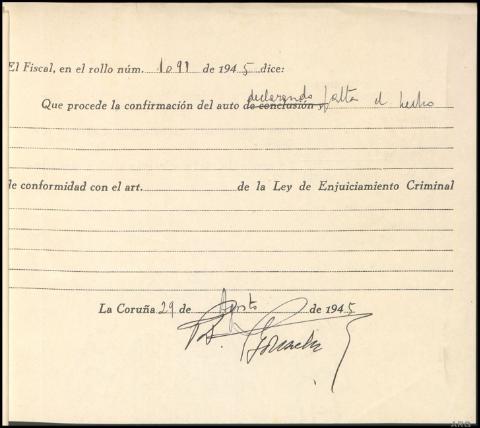 El Fiscal, en el rollo núm. 1091 de 1945 dice:
declarando falta el hecho
Que procede la confirmación del auto de conclusión y
de conformidad con el art. de la Ley de Enjuiciamiento Criminal
La Coruña 29 de Agosto de 1945
ARG